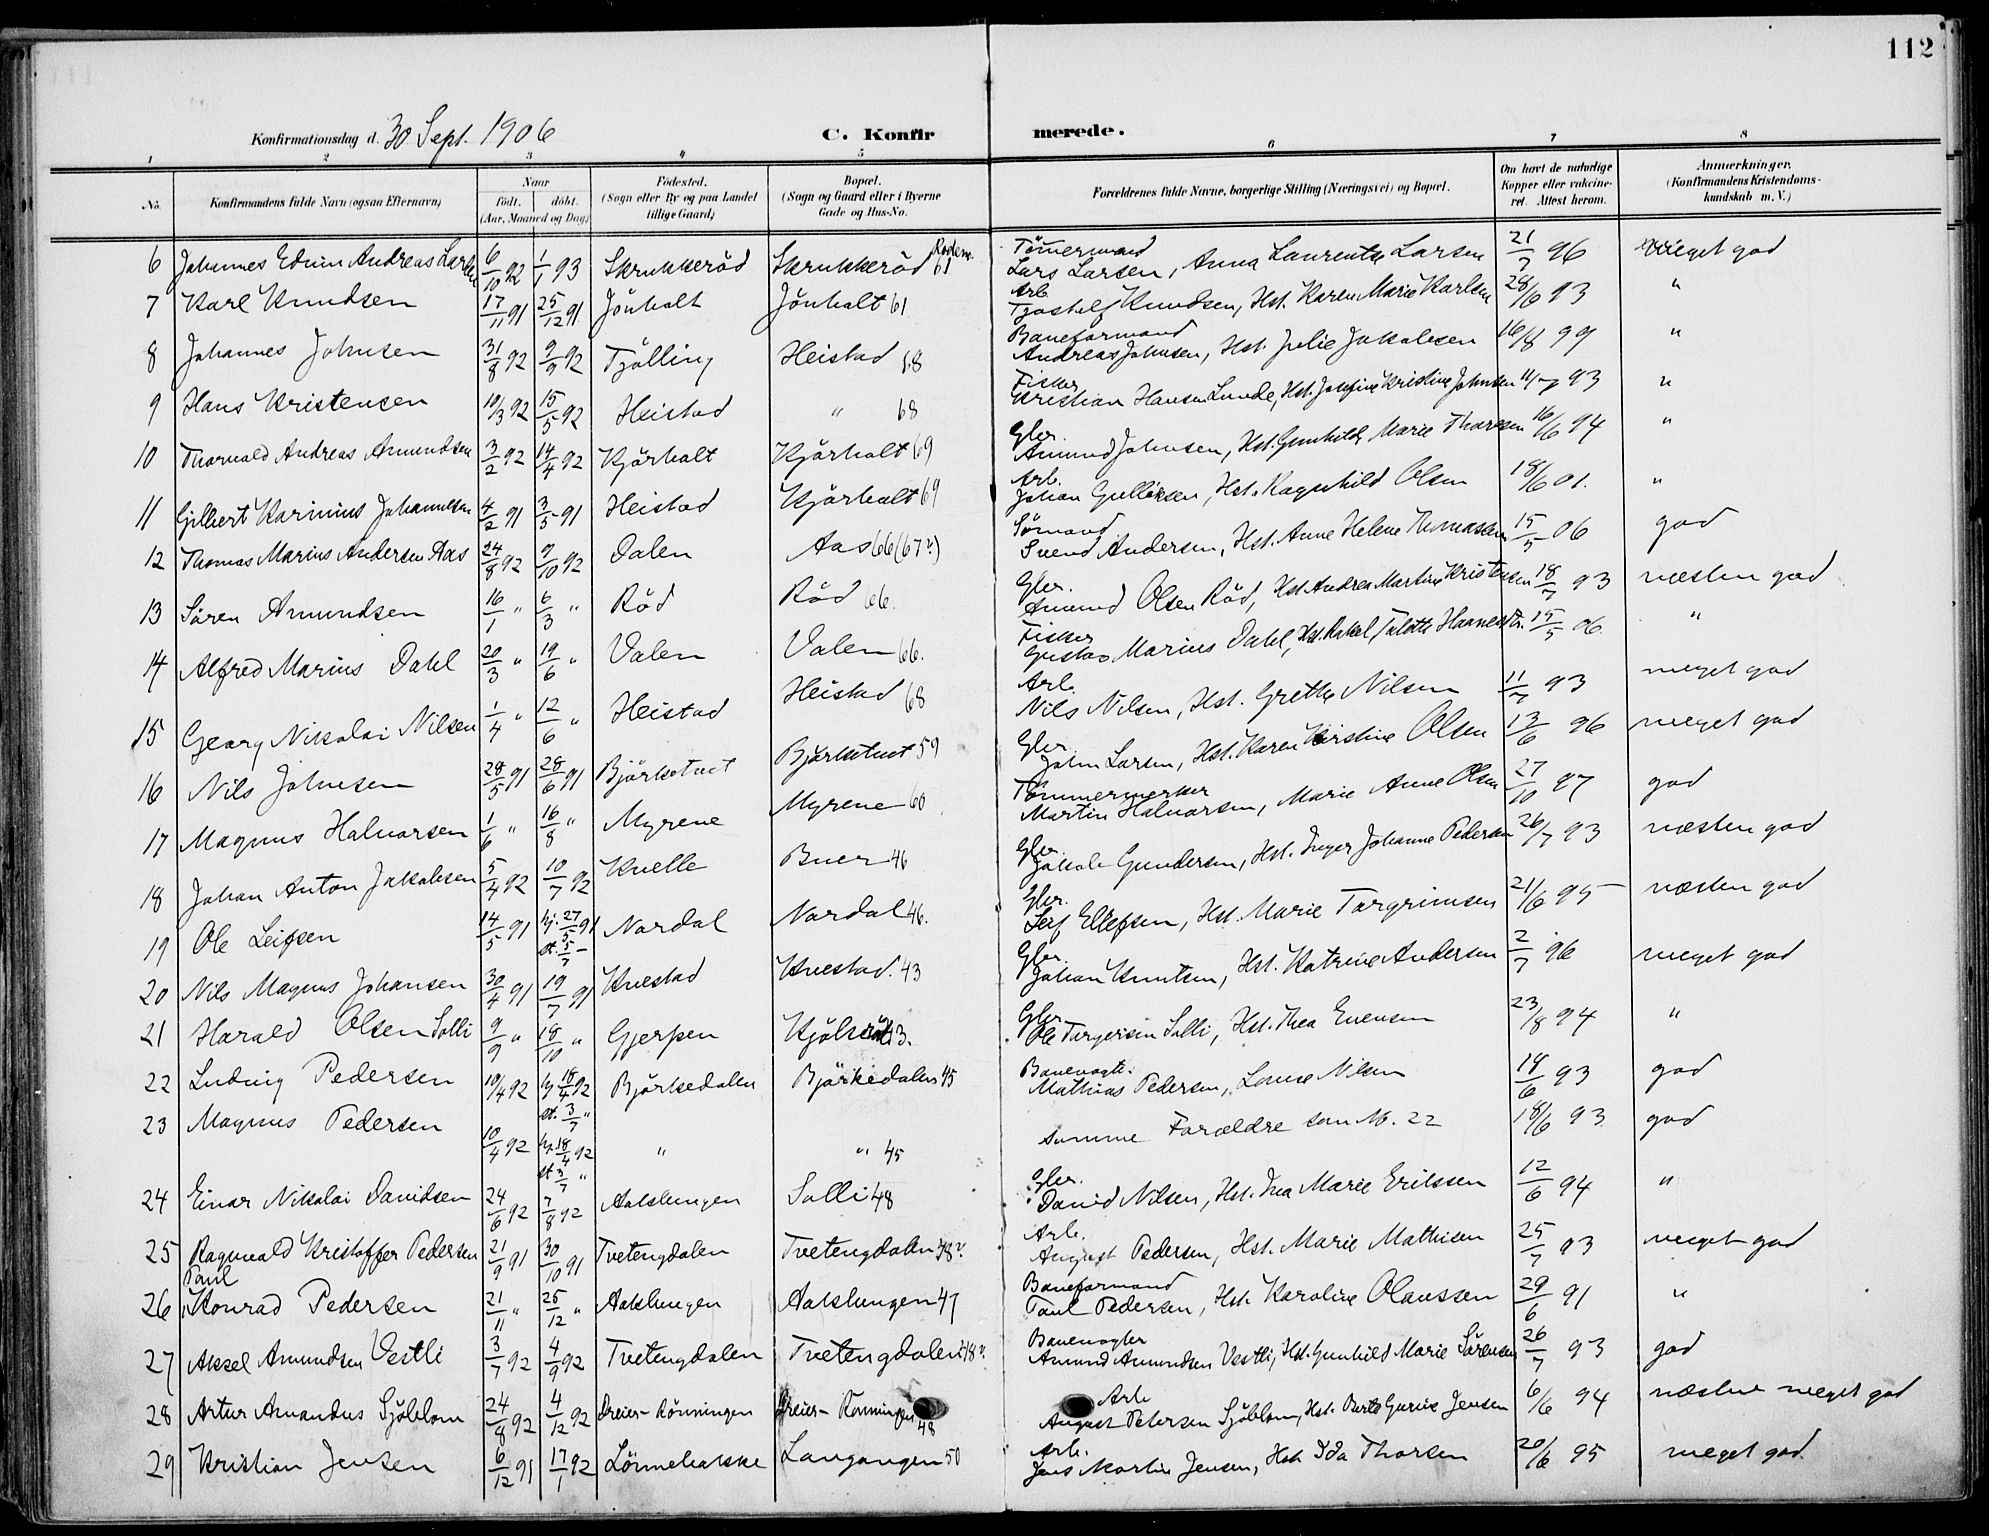 112
Konfirmationsdag d. 30 Sept. 1906 C. Konfir merede.
1 2 3 4 5 6 7 8
No. Konfirmandens fulde Navn (ogsaa Efternavn) Naar født. døbt. (Aar, Maaned og Dag) Fødested. (Sogn eller By og paa Landet tillige Gaard) Bopæl. (Sogn og Gaard eller i Byerne Gade og Hus-No. Forældrenes fulde Navne, borgerlige Stilling (Næringsvei) og Bopæl. Om havt de naturlige Kopper eller vakcineret. Attest herom. Anmærkninger. (Konfirmandens Kristendomskundskab m. V.)
6 Johannes Edvin Andreas Larsen 6/10 92 1/1 93 Skrukkerød Skrukkerød 61 Tømermand Lars Larsen, Anna Laurentse Larsen 21/7 96 meget god
7 Karl Knudsen 17/11 91 25/12 91 Jønholt Jønholt 61 Arb. Tjostolf Knudsen, Hst. Karen Marie Karlsen 28/6 93 "
8 Johannes Johnsen 31/8 92 9/9 92 Tjølling Heistad 68 Baneformand Andreas Johnsen, Hst. Julie Jakobsen 16/8 99 "
9 Hans Kristensen 10/3 92 15/5 92 Heistad " 68 Fisker Kristian Hansen Lunde, Hst. Josefine Kristine Johnsen 11/7 93 "
10 Thorvald Andreas Amundsen 3/2 92 14/4 92 Kjørholt Kjørholt 69 Gbr. Amund Johnsen, Hst. Gunhild Marie Thorsen 16/6 94 "
11 Gilbert Karinius Johannesen 4/2 91 3/5 91 Heistad Kjørholt 69 Arb. Johan Gulliksen, Hst. Ragnhild Olsen 18/6 01. "
12 Thomas Marius Andersen Aas 24/8 92 9/10 92 Dalen Aas 66 (67?) Sømand Svend Andersen, Hst. Anne Helene Thomassen 15/5 06 god
13 Søren Amundsen 16/1 " 6/3 " Rød Rød 66. Gbr. Amund Olsen Rød, Hst. Andrea Martine Kristensen 18/7 93 næsten god
14 Alfred Marius Dahl 20/3 " 19/6 " Valen Valen 66. Fisker Gustav Marius Dahl, Hst. Rakel Talette 15/5 06. "
15 Georg Nikolai Nilsen 1/4 " 12/6 " Heistad Heistad 68 Arb. Nils Nilsen, Hst. Grethe Nilsen 11/7 93 meget god
16 Nils Johnsen 28/5 91 28/6 91 Bjørketvet Bjørketvet 59 Gbr. John Larsen, Hst. Karen Kirstine Olsen 13/6 96 meget god
17 Magnus Halvorsen 1/6 " 16/8 " Myrene Myrene 60 Tømmermerker Martin Halvorsen, Marie Anne Olsen 27/10 97 god
18 Johan Anton Jakobsen 5/4 92 10/7 92 Kvelle Buer 46 Gbr. Jakob Gundersen, Hst. Inger Johanne Pedersen 26/7 93 næsten god
19 Ole Leifsen 14/5 91 hj. 27/5 91 st. 5/7 – Nordal Nordal 46. Gbr. Leif Ellefsen, Hst. Marie Torgrimsen 21/6 95 næsten god
20 Nils Magnus Johansen 30/4 91 19/7 91 Kvestad Kvestad. 43 Gbr. Johan Knutsen, Hst. Katrine Andersen 2/7 96 meget god
21 Harald Olsen Solli 9/9 " 18/10 " Gjerpen 43. Gbr. Ole Torgersen Solli, Hst. Thea Evensen 23/8 94 "
22 Ludvig Pedersen 10/4 92 hj 18/4 92 st. 3/7 " Bjørkedalen Bjørkedalen 45 Banevogt. Mathias Pedersen, Lovise Nilsen 18/6 93 god
23 Magnus Pedersen 10/4 92 hj 18/4 92 st 3/7 " " " 45 samme Forældre som No. 22 18/6 93 god
24 Einar Nikolai Davidsen 24/6 92 7/8 92 Aaklungen Solli 48 Gbr. David Nilsen, Hst. Ina Marie Eriksen 12/6 94 "
25 Ragnvald Kristoffer Pedersen 21/9 91 30/10 91 Tvetengdalen Tvetengdalen 48? Arb. August Pedersen, Hst. Marie Mathisen 25/7 93 meget god
26 Paul Konrad Pedersen 21/11 " 25/12 " Aaklungen Aaklungen 47 Baneformand Paul Pedersen, Hst. Karoline Olaussen 29/6 91 "
27 Aksel Amundsen Vestli 3/7 92 4/9 92 Tvetengdalen Tvetengdalen 48? Banevogter Amund Amundsen Vestli, Hst. Gunhild Marie Sørensen 26/7 93 god
28 Artur Amandus Sjøblom 24/8 92 4/12 92 Dreier-Rønningen Dreier-Rønningen 48 Arb August Petersen Sjøblom, Hst. Berte Gurine Jensen 6/6 94 næsten meget god
29 Kristian Jensen 6/12 91 17/1 92 Lønnebakke Langangen 50 Arb. Jens Martin Jensen, Hst. Ida Thorsen 20/6 95 meget god.